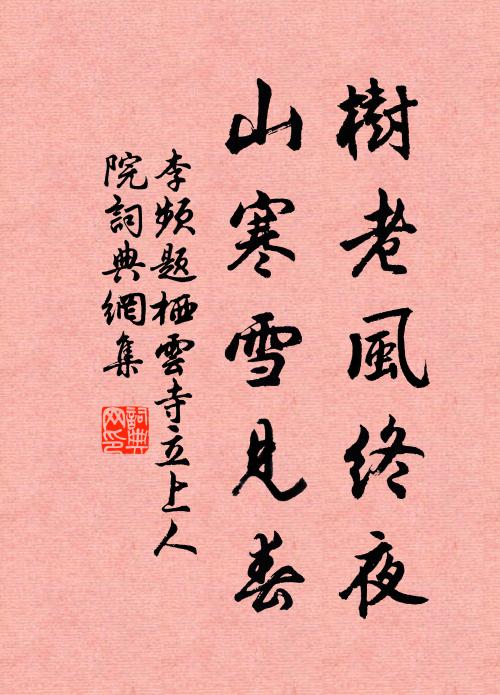 樹老風終夜
山寒雪見春
李頻題栖雲寺立上人
院詞典網集
詞典
网印